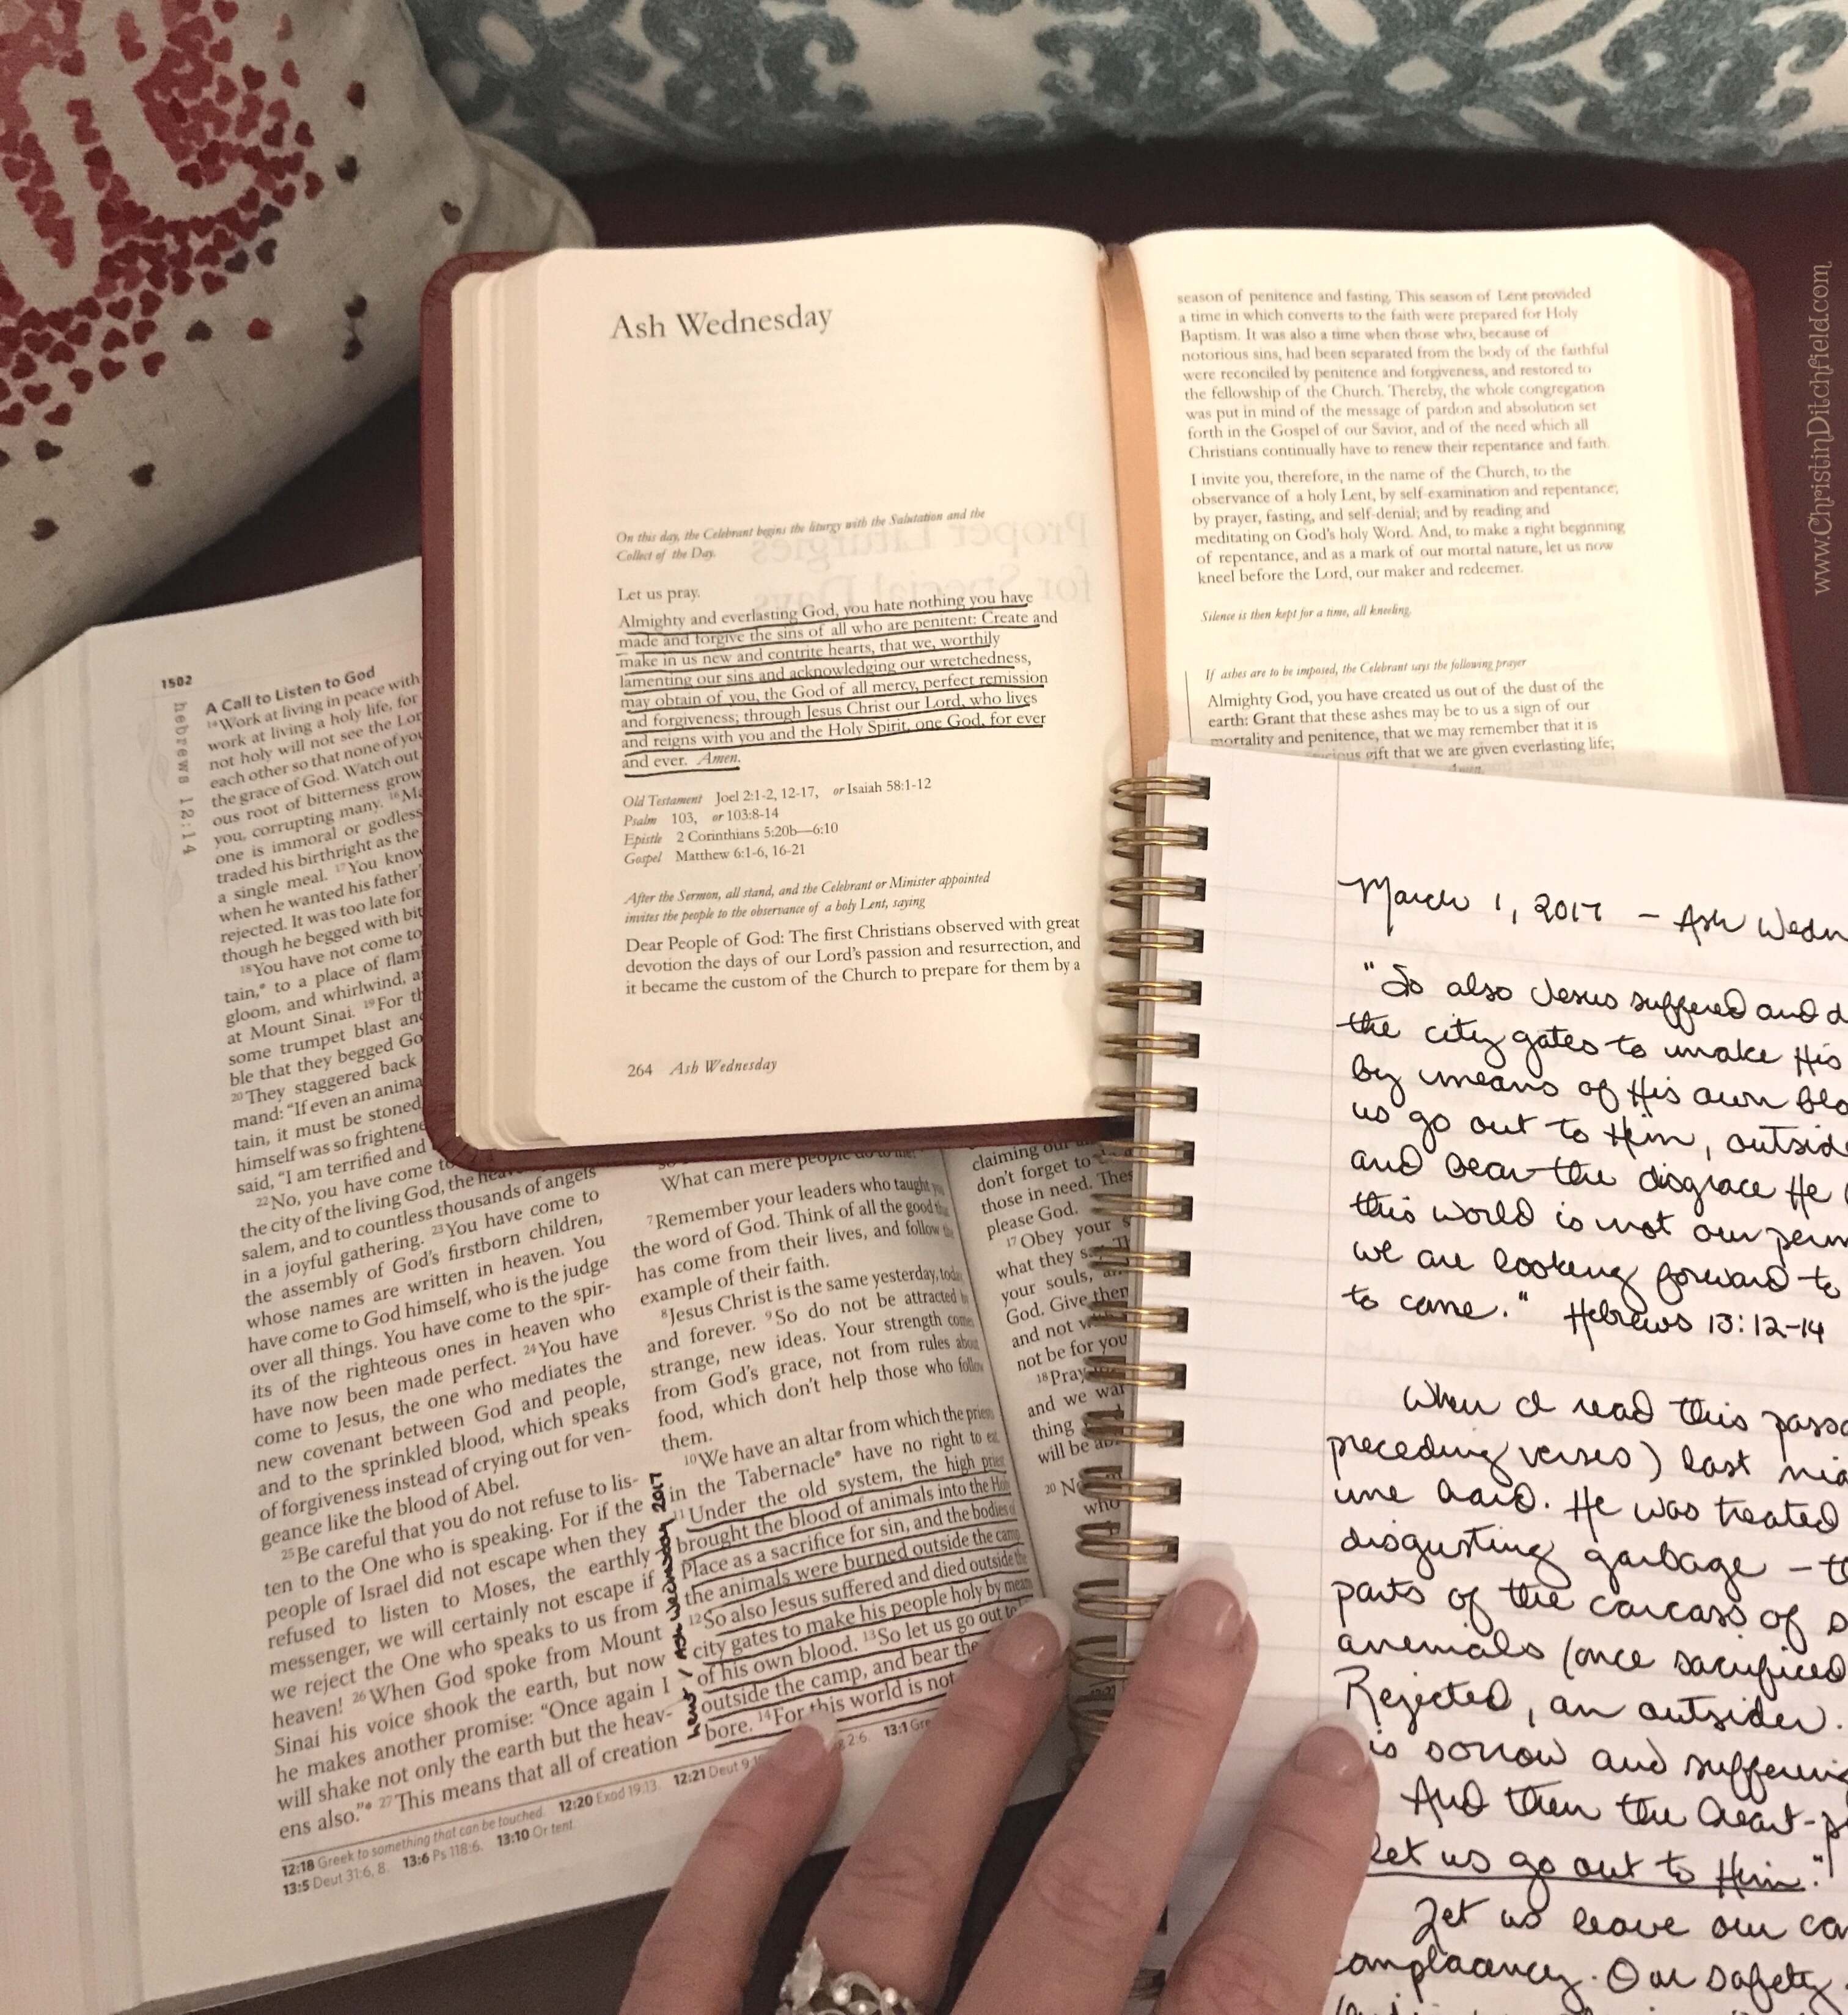 Ash Wednesday
On this day, the Celebrant begins the liturgy with the Salutation and the
Collect of the Day.
Let us pray.
Almighty and everlasting God, you hate nothing you have
made and forgive the sins of all who are penitent: Create and
make in us new and contrite hearts, that we, worthily
lamenting our sins and acknowledging our wretchedness,
may obtain of you, the God of all mercy, perfect remission
and forgiveness; through Jesus Christ our Lord, who lives
and reigns with you and the Holy Spirit, one God, for ever
and ever. Amen.
Old Testament Joel 2:1-2, 12-17, or Isaiah 58:1-12
Psalm 103, or 103:8-14
Epistle 2 Corinthians 5:20b—6:10
Gospel Matthew 6:1-6, 16-21
After the Sermon, all stand, and the Celebrant or Minister appointed
invites the people to the observance of a holy Lent, saying
Dear People of God: The first Christians observed with great
devotion the days of our Lord's passion and resurrection, and
it became the custom of the Church to prepare for them by a
264 Ash Wednesday
season of penitence and fasting. This season of Lent provided
a time in which converts to the faith were prepared for Holy
Baptism. It was also a time when those who, because of
notorious sins, had been separated from the body of the faithful
were reconciled by penitence and forgiveness, and restored to
the fellowship of the Church. Thereby, the whole congregation
was put in mind of the message of pardon and absolution set
forth in the Gospel of our Savior, and of the need which all
Christians continually have to renew their repentance and faith.
I invite you, therefore, in the name of the Church, to the
observance of a holy Lent, by self-examination and repentance;
by prayer, fasting, and self-denial; and by reading and
meditating on God's holy Word. And, to make a right beginning
of repentance, and as a mark of our mortal nature, let us now
kneel before the Lord, our maker and redeemer.
Silence is then kept for a time, all kneeling.
If ashes are to be imposed, the Celebrant says the following prayer
Almighty God, you have created us out of the dust of the
earth: Grant that these ashes may be to us a sign of our
mortality and penitence, that we may remember that it is
gift that we are given everlasting life;
www.ChristinDitchfield.com
1502
hebrews 12:14
A Call to Listen to God
14Work at living in peace with
work at living a holy life, for
not holy will not see the Lor
each other so that none of you
the grace of God. Watch out
ous root of bitterness grow
you, corrupting many. 16Ma
one is immoral or godless
traded his birthright as the
a single meal. 17You know
when he wanted his father'
rejected. It was too late for
though he begged with bit
18You have not come to
tain,* to a place of flam
gloom, and whirlwind, a
at Mount Sinai. 19For th
some trumpet blast and
ble that they begged Go
20They staggered back
mand: "If even an anima
tain, it must be stoned
himself was so frightene
said, "I am terrified and
22No, you have come to
the city of the living God, the heav
salem, and to countless thousands of angels
in a joyful gathering. 23You have come to
the assembly of God's firstborn children,
whose names are written in heaven. You
have come to God himself, who is the judge
over all things. You have come to the spir-
its of the righteous ones in heaven who
have now been made perfect. 24You have
come to Jesus, the one who mediates the
new covenant between God and people,
and to the sprinkled blood, which speaks
of forgiveness instead of crying out for ven-
geance like the blood of Abel.
25Be careful that you do not refuse to lis-
ten to the One who is speaking. For if the
people of Israel did not escape when they
refused to listen to Moses, the earthly
messenger, we will certainly not escape if
we reject the One who speaks to us from
heaven! 26When God spoke from Mount
Sinai his voice shook the earth, but now
he makes another promise: "Once again I
will shake not only the earth but the heav-
ens also."* 27This means that all of creation
What can mere people do to me?
7Remember your leaders who taught you
the word of God. Think of all the good that
has come from their lives, and follow the
example of their faith.
8Jesus Christ is the same yesterday, today
and forever. 9So do not be attracted by
strange, new ideas. Your strength comes
from God's grace, not from rules about
food, which don't help those who follow
them.
10We have an altar from which the priests
in the Tabernacle* have no right to eat.
11Under the old system, the high priest
brought the blood of animals into the Holy
Place as a sacrifice for sin, and the bodies of
the animals were burned outside the camp.
12So also Jesus suffered and died outside the
city gates to make his people holy by means
of his own blood. 13So let us go out to
outside the camp, and bear the
bore. 14For this world is not
Ash Wednesday 2017
12:18 Greek to something that can be touched. 12:20 Exod 19:13. 12:21 Deut 9:1
13:5 Deut 31:6, 8. 13:6 Ps 118:6. 13:10 Or tent.
2:6. 13:1 Gre
claiming our
don't forget to
those in need. Thes
please God.
17Obey your s
what they say. T
your souls, an
God. Give then
and not w
not be for you
18Pray
and we wan
thing
will be ab
20 No
who
March 1, 2017 - Ash Wedn
"So also Jesus suffered and d
the city gates to make His
by means of His own blo
us go out to Him, outsid
and bear the disgrace He
this world is not our perm
we are looking forward to
to come." Hebrews 13:12-14
When I read this passa
preceding verses) last nig
me hard. He was treated
disgusting garbage - t
parts of the carcass of s
animals (once sacrificed
Rejected, an outsider.
is sorrow and suffering
And then the heart-p
Let us go out to Him."
Let us leave our co
complacency. Our safety